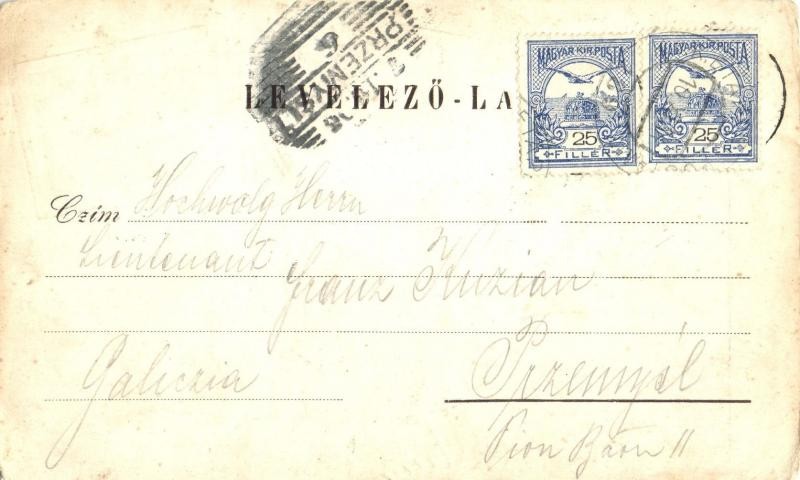 PRZEMYŚL
LEVELEZŐ-LA
MAGYAR KIR. POSTA
25
FILLÉR
MAGYAR KIR. POSTA
25
FILLÉR
Czím Hochwolg Herrn
Lieutenant
Franz Kuzian
Galiczia
Przemyśl
Pion Baon 11